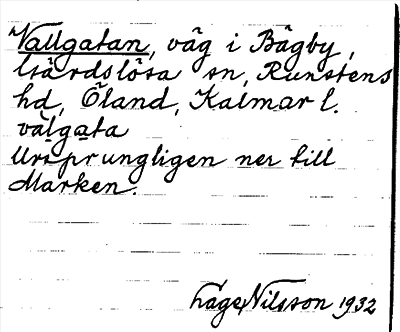 Vallgatan, väg i Bägby,
Gärdslösa sn, Runstens
hd, Öland, Kalmar l.
välgata
Ursprungligen ner till
Marken.
Åge Nilsson 1932